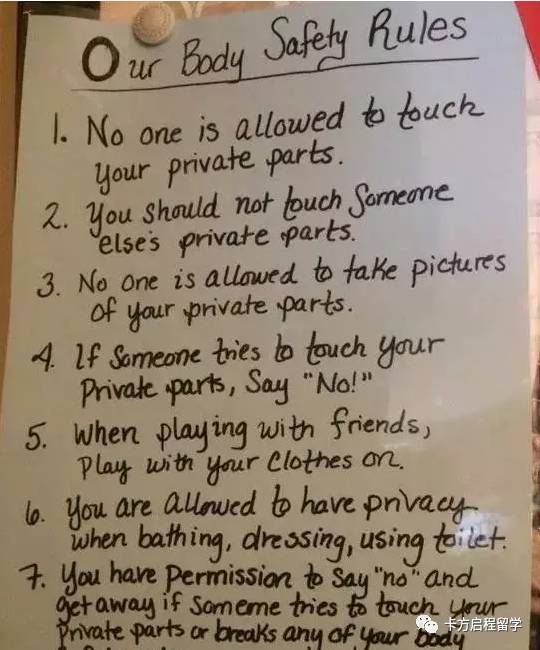 Our Body Safety Rules
1. No one is allowed to touch
your private parts.
2. You should not touch Someone
else's private parts.
3. No one is allowed to take pictures
of your private parts.
4. If Someone tries to touch your
Private parts, Say "No!"
5. When playing with friends,
Play with your Clothes on.
6. You are allowed to have privacy
when bathing, dressing, using toilet.
7. You have Permission to Say "no" and
get away if Someone tries to touch your
Private parts or breaks any of your body
卡方启程留学